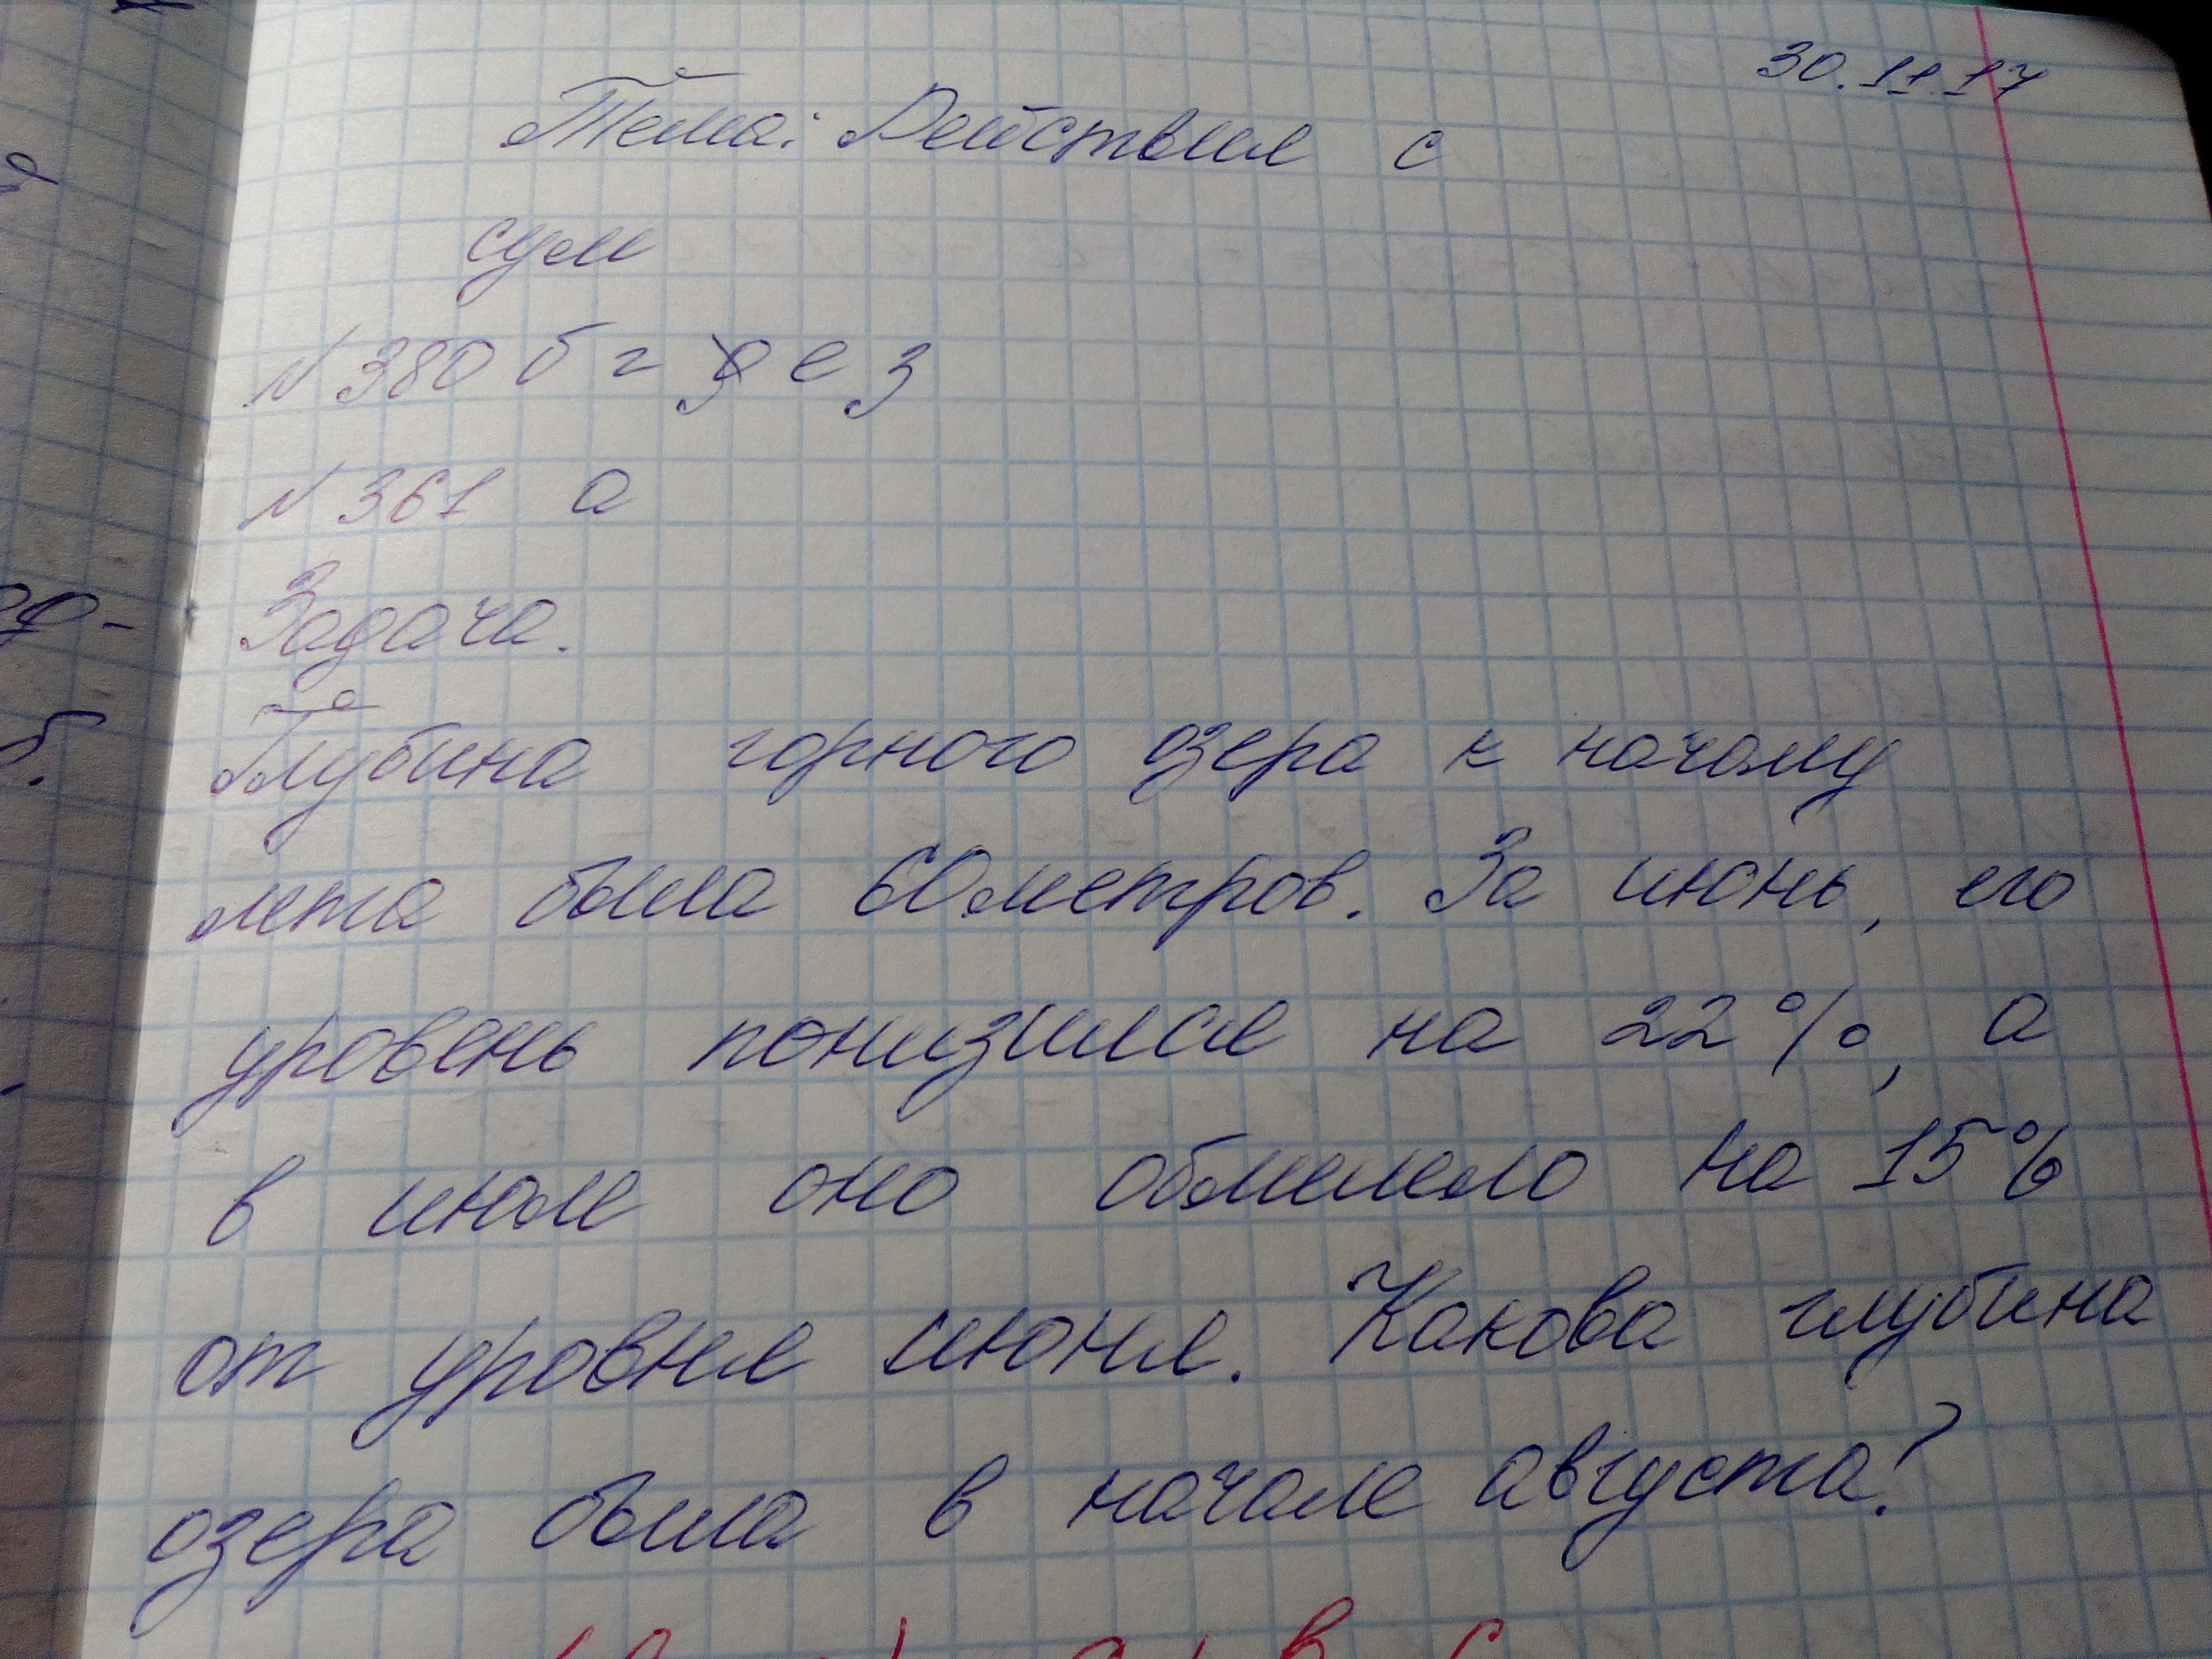 30.11.17
Тема: Действия с
сум
№ 380 б г е з
№ 361 а
Задача.
Глубина горного озера к началу
лета была 60 метров. За июнь, его
уровень понизился на 22%, а
в июле оно обмелело на 15%
от уровня июня. Какова глубина
озера была в начале августа?